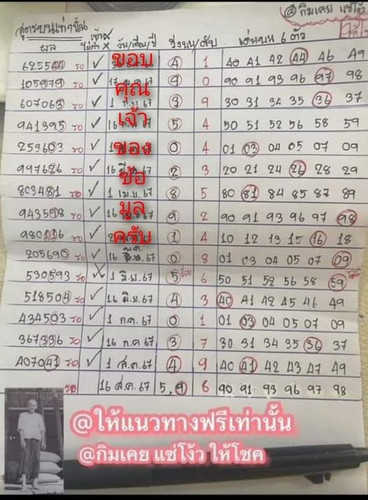 @กิมเคย แซ่โง้ว
สูตรบนเท่านั้น
ผล วัน/เดือน/ปี วิ่งบน/ดับ เด่นบน 6 ตัว
ขอบ
คุณ
เจ้า
ของ
ข้อ
มูล
ครับ
625544 รอ ✓ 4 1 40 41 42 44 46 49
105979 รอ ✓ 9 0 90 91 93 96 97 98
607063 รอ ✓ 3 9 30 31 34 35 36 37
941395 รอ ✓ 5 4 50 51 52 56 58 59
253603 รอ ✓ 0 4 01 03 04 05 07 09
997626 รอ ✓ 2 3 20 21 24 26 28 29
803481 รอ ✓ 1 เม.ย. 67 8 5 80 81 84 85 87 89
943598 รอ ✓ 9 2 90 91 93 96 97 98
980116 รอ ✓ 1 4 10 12 13 15 16 18
205690 รอ ✓ 16 มิ.ย. 67 0 8 01 03 04 05 07 09
530593 รอ 1 มิ.ย. 67 5 6 50 51 52 56 58 59
518504 รอ ✓ 16 มิ.ย. 67 4 3 40 41 42 45 46 49
434503 รอ ✓ 1 ก.ค. 67 0 1 01 03 04 05 07 09
367336 รอ ✓ 16 ก.ค. 67 3 7 30 31 34 35 36 37
407041 รอ ✓ 1 ส.ค. 67 4 9 40 41 42 43 47 49
รอ 16 ส.ค. 67 5,9 6 90 91 93 96 97 98
@ให้แนวทางฟรีเท่านั้น
@กิมเคย แซ่โง้ว ให้โชค